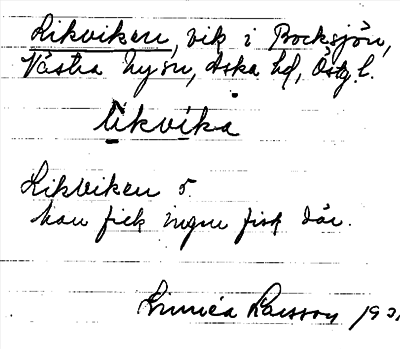 Likviken, vik i Bocksjön,
Västra Ny sn, Aska hd, Östg. l.
likvika
Likviken 5
han fick ingen fisk där.
Linnéa Larsson 193